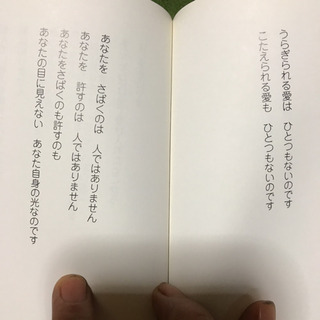 うらぎられる愛は　ひとつもないのです
こたえられる愛も　ひとつもないのです
あなたを　さばくのは　人ではありません
あなたを　許すのは　人ではありません
あなたをさばくのも許すのも
あなたの目に見えない　あなた自身の光なのです